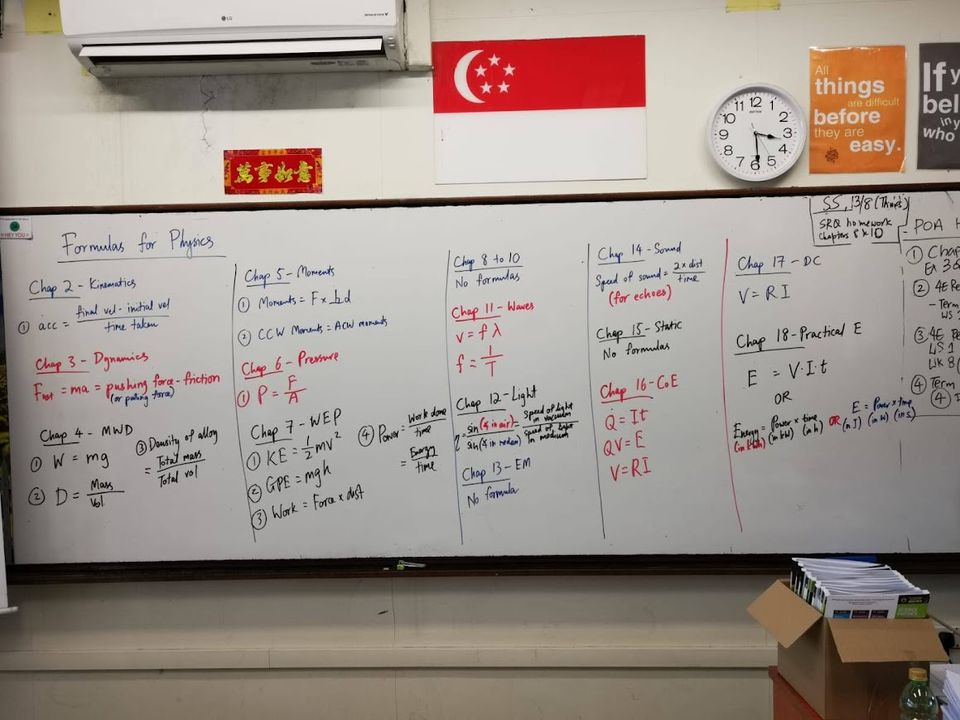 LG
萬事如意
12
1
2
3
4
5
6
7
8
9
10
11
All
things
are difficult
before
they are
easy.
If y
bel
in y
who
HEY YOU
Formulas for Physics
Chap 2 - Kinematics
① acc = final vel - initial vel / time taken
Chap 3 - Dynamics
Fnet = ma = pushing force - friction
(or pulling force)
Chap 4 - MWD
① W = mg
② D = Mass / Vol
③ Density of alloy
= Total mass / Total vol
Chap 5 - Moments
① Moments = F x ⊥d
② CCW Moments = ACW moments
Chap 6 - Pressure
① P = F/A
Chap 7 - WEP
① KE = ½mv²
② GPE = mgh
③ Work = Force x dist
④ Power = Work done / time
= Energy / time
Chap 8 to 10
No formulas
Chap 11 - Waves
v = fλ
f = 1/T
Chap 12 - Light
sin(∡ in air) / sin(∡ in medium) = Speed of light in vacuum / Speed of light in medium
Chap 13 - EM
No formula
Chap 14 - Sound
Speed of sound = 2 x dist / time
(for echoes)
Chap 15 - Static
No formulas
Chap 16 - CoE
Q = It
QV = E
V = RI
Chap 17 - DC
V = RI
Chap 18 - Practical E
E = V·I·t
OR
Energy = Power x time OR E = Power x time
(in kWh) (in kW) (in h) (in J) (in W) (in s)
SS, 13/8 (Thurs)
SRQ homework
Chapters 8 & 10
POA H
① Chap
Ex 3 &
② 4E Re
- Term
WS 1
③ 4E Re
WS 1
④ Term
④